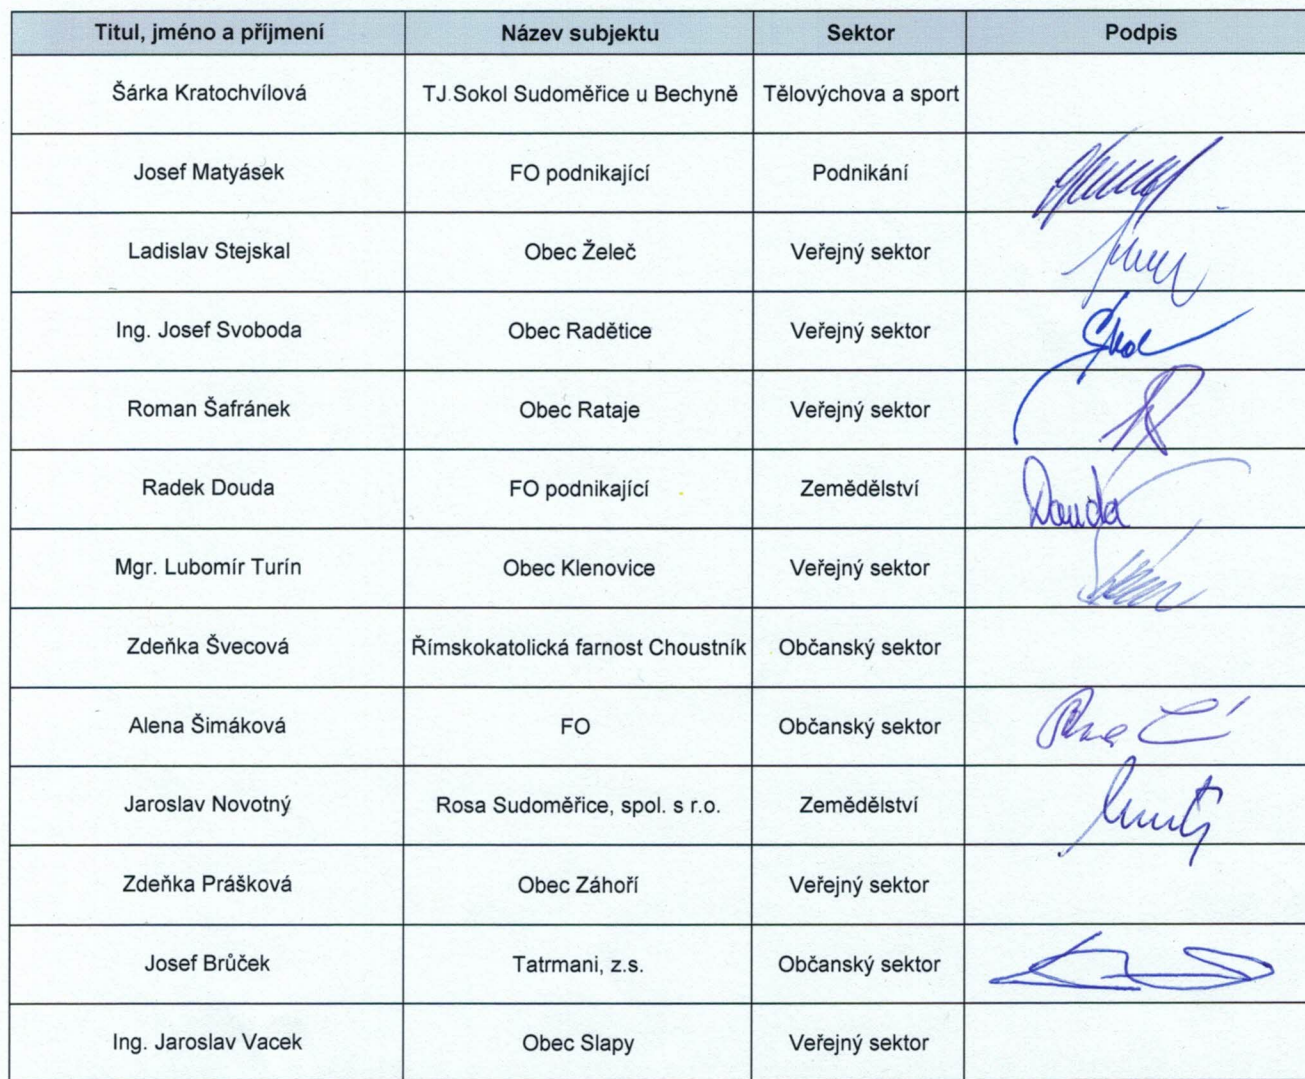 Titul, jméno a příjmení Název subjektu Sektor Podpis
Šárka Kratochvílová TJ.Sokol Sudoměřice u Bechyně Tělovýchova a sport
Josef Matyásek FO podnikající Podnikání
Ladislav Stejskal Obec Želeč Veřejný sektor
Ing. Josef Svoboda Obec Radětice Veřejný sektor
Roman Šafránek Obec Rataje Veřejný sektor
Radek Douda FO podnikající Zemědělství Douda
Mgr. Lubomír Turín Obec Klenovice Veřejný sektor
Zdeňka Švecová Římskokatolická farnost Choustník Občanský sektor
Alena Šimáková FO Občanský sektor
Jaroslav Novotný Rosa Sudoměřice, spol. s r.o. Zemědělství
Zdeňka Prášková Obec Záhoří Veřejný sektor
Josef Brůček Tatrmani, z.s. Občanský sektor
Ing. Jaroslav Vacek Obec Slapy Veřejný sektor